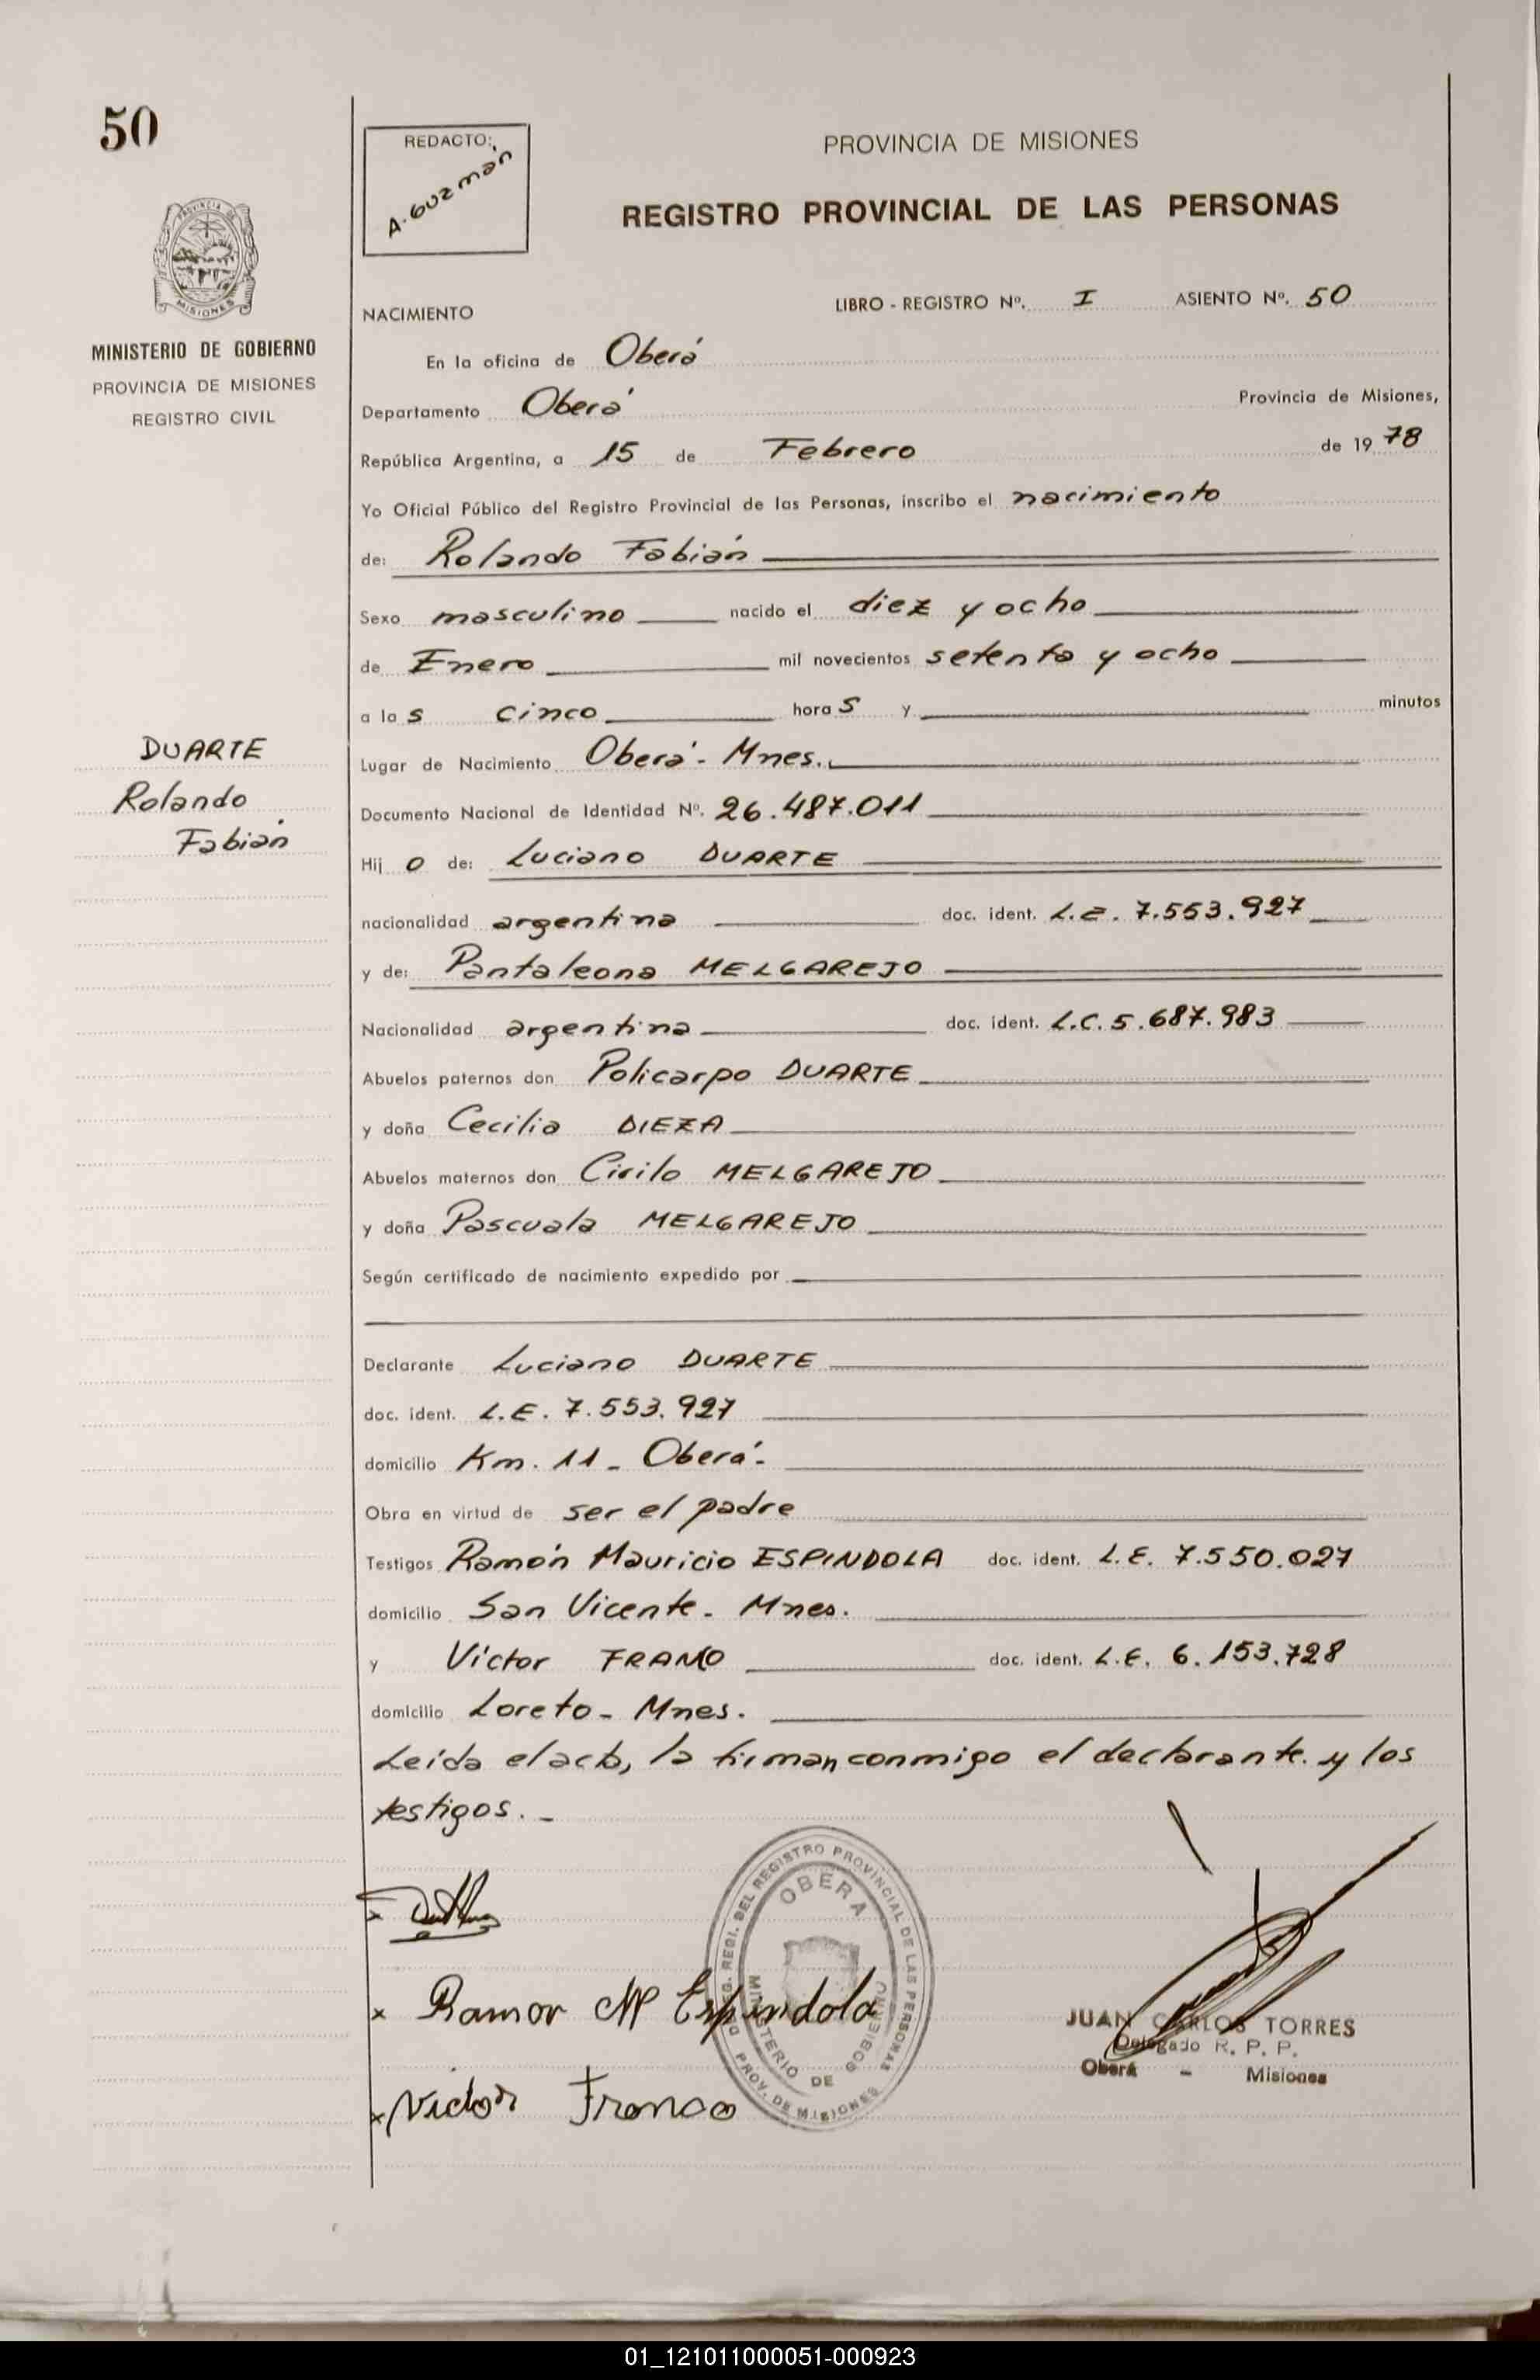 50
REDACTO:
A. Guzmán
PROVINCIA DE MISIONES
REGISTRO PROVINCIAL DE LAS PERSONAS
PROVINCIA DE
MISIONES
MINISTERIO DE GOBIERNO
PROVINCIA DE MISIONES
REGISTRO CIVIL
LIBRO - REGISTRO Nº. I ASIENTO Nº. 50
NACIMIENTO
En la oficina de Oberá
Departamento Oberá Provincia de Misiones,
República Argentina, a 15 de Febrero de 1978
Yo Oficial Público del Registro Provincial de las Personas, inscribo el nacimiento
de: Rolando Fabián
Sexo masculino nacido el diez y ocho
de Enero mil novecientos setenta y ocho
a las cinco horas y minutos
DUARTE
Rolando
Fabián
Lugar de Nacimiento Oberá - Mnes.
Documento Nacional de Identidad Nº. 26.487.011
Hijo de: Luciano DUARTE
nacionalidad argentina doc. ident. L.E. 7.553.927
y de: Pantaleona MELGAREJO
Nacionalidad argentina doc. ident. L.C. 5.687.983
Abuelos paternos don Policarpo DUARTE
y doña Cecilia DIEZA
Abuelos maternos don Cirilo MELGAREJO
y doña Pascuala MELGAREJO
Según certificado de nacimiento expedido por
Declarante Luciano DUARTE
doc. ident. L.E. 7.553.927
domicilio Km. 11 - Oberá -
Obra en virtud de ser el padre
Testigos Ramón Mauricio ESPINDOLA doc. ident. L.E. 7.550.027
domicilio San Vicente - Mnes.
y Victor doc. ident. L.E. 6.153.728
domicilio Loreto - Mnes.
Leida el acta, la firman conmigo el declarante y los
testigos. -
x Ramon M Espindola
x Victor Franco
DELEG. REGI. DEL REGISTRO PROVINCIAL DE LAS PERSONAS
OBERA
MINISTERIO DE GOBIERNO
PROV. DE MISIONES
JUAN CARLOS TORRES
Delegado R. P. P.
Oberá - Misiones
01_121011000051-000923